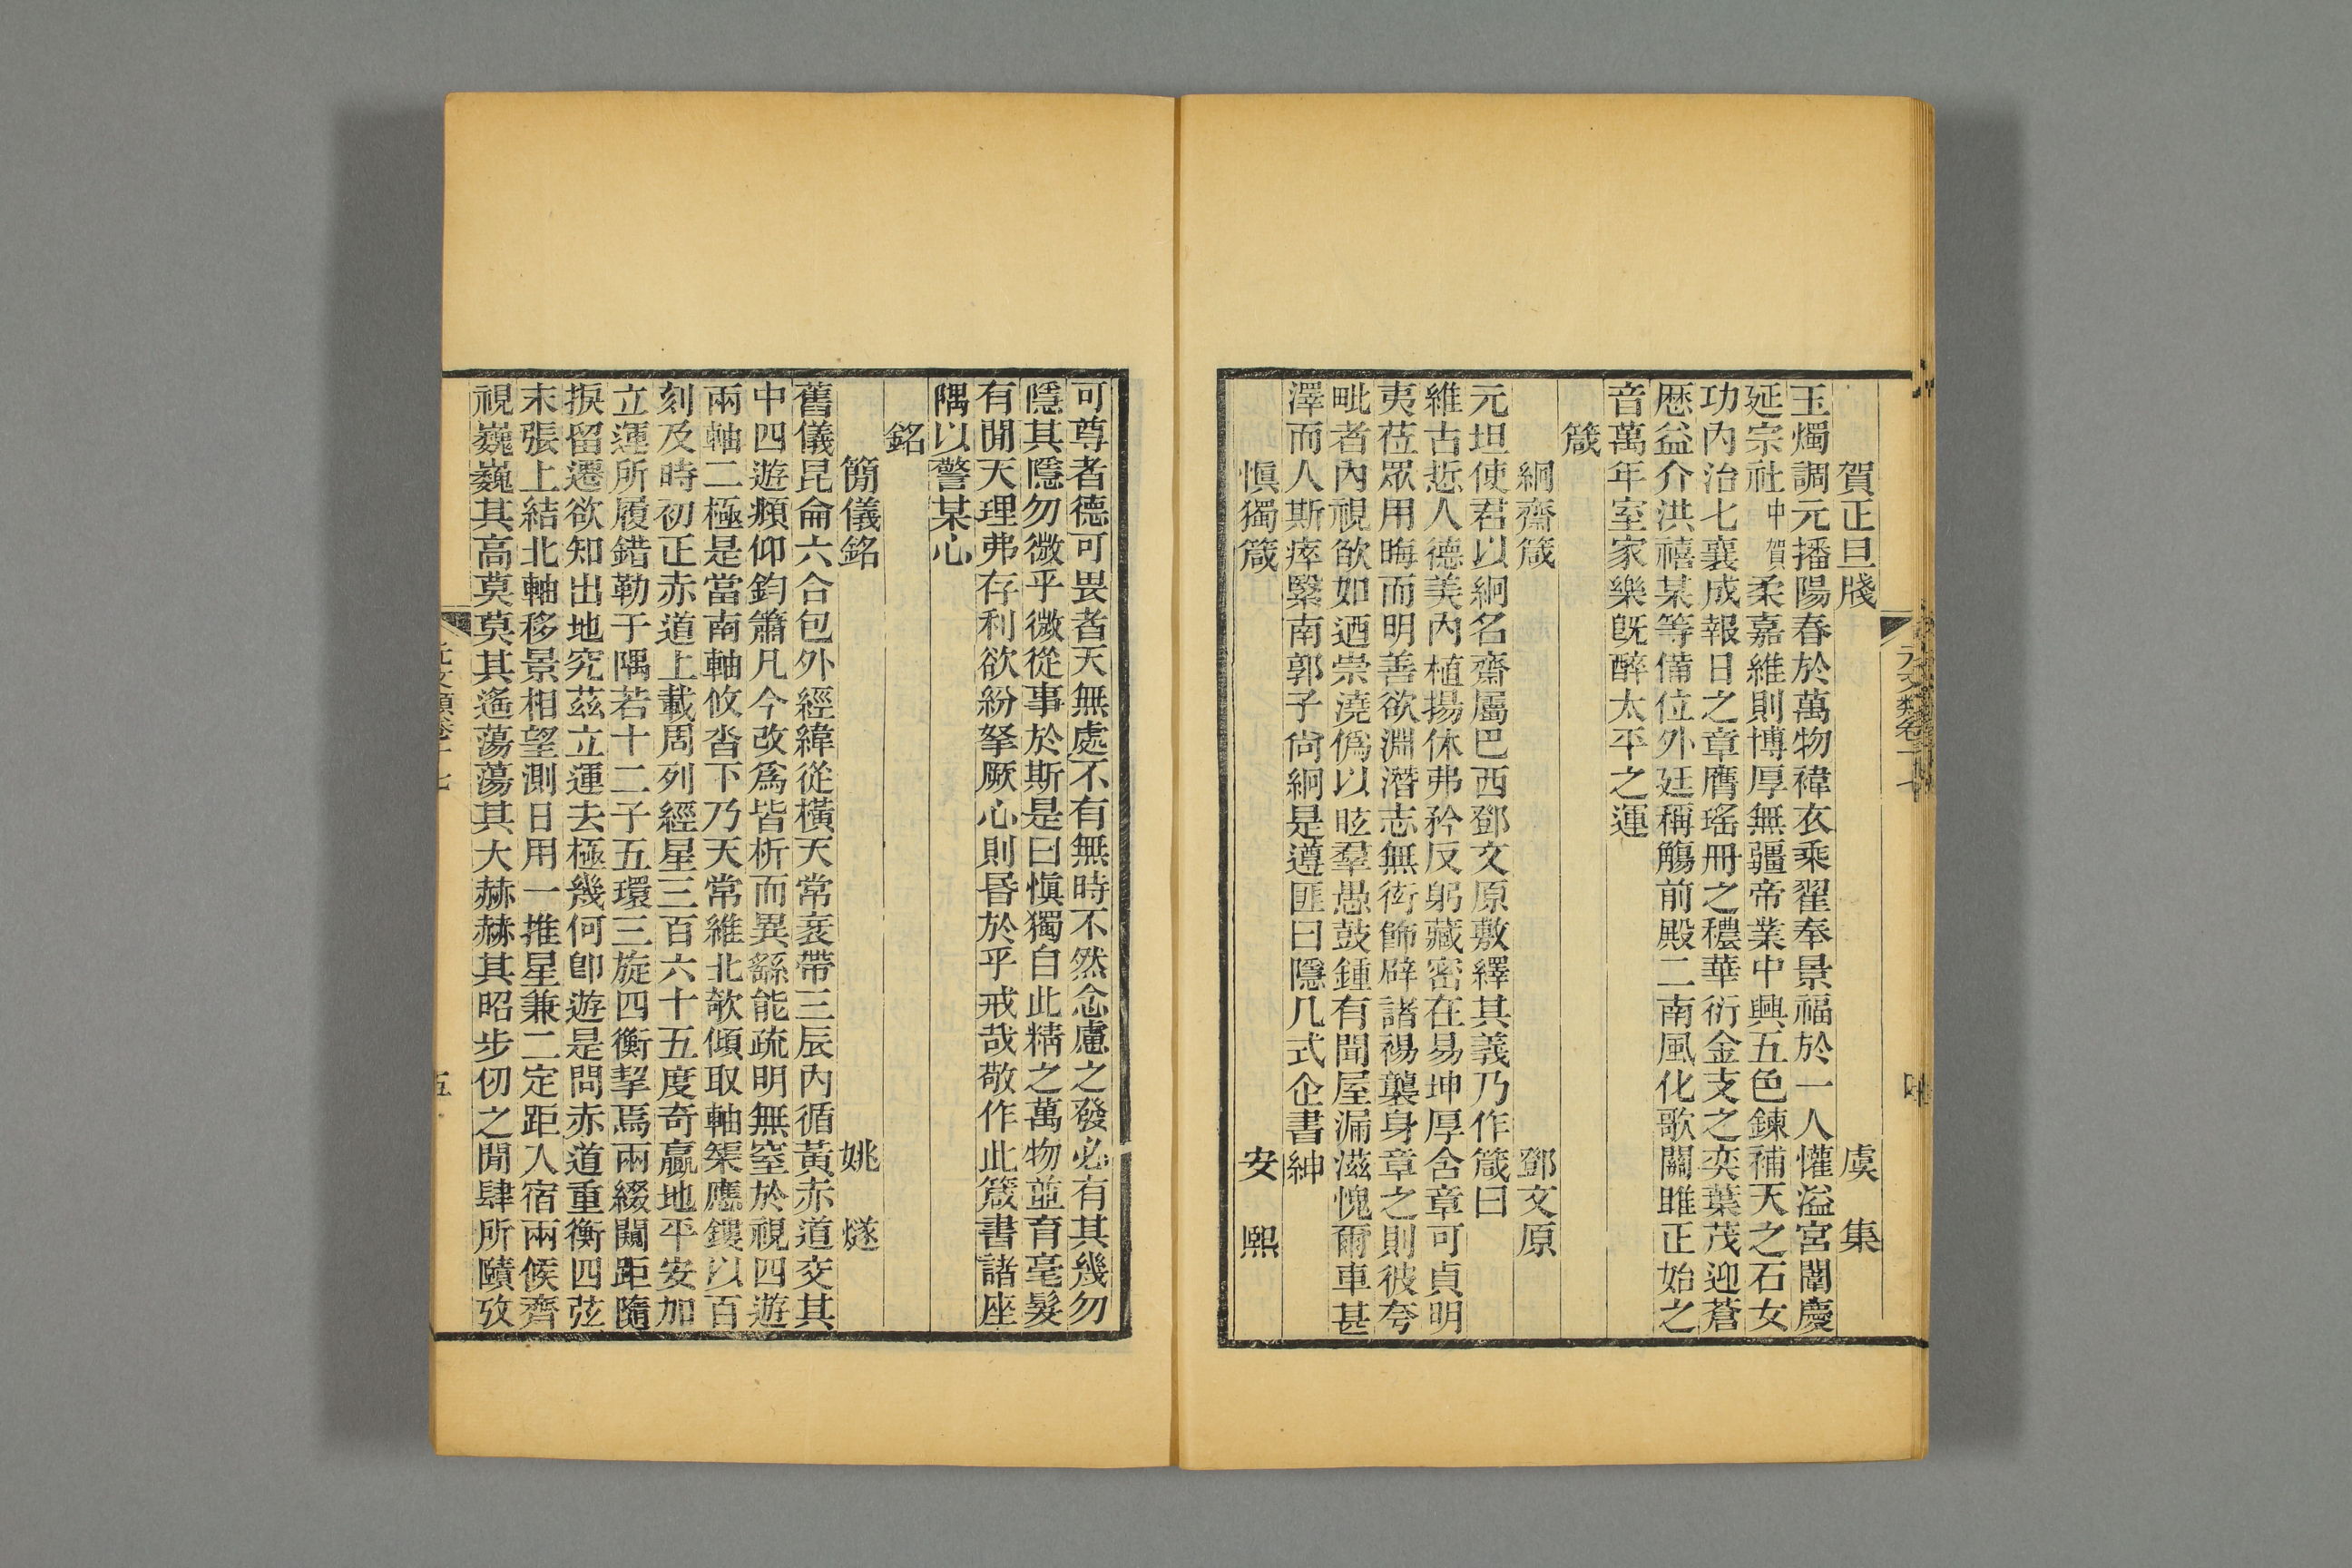 賀正旦牋 虞集
玉燭調元播陽春於萬物褘衣乘翟奉景福於一人懽溢宮闈慶
延宗社中賀柔嘉維則博厚無疆帝業中興五色鍊補天之石女
功內治七襄成報日之章膺瑤冊之穠華衍金支之奕葉茂迎蒼
歷益介洪禧某等備位外廷稱觴前殿二南風化歌關雎正始之
音萬年室家樂旣醉太平之運
箴
絅齋箴 鄧文原
元坦使君以絅名齋屬巴西鄧文原敷繹其義乃作箴曰
維古悊人德美內植揚休弗矜反躬藏密在易坤厚含章可貞明
夷莅眾用晦而明善欲淵潛志無衒飾辟諸裼襲身章之則彼夸
毗者內視欿如迺崇澆僞以眩羣愚鼓鍾有聞屋漏滋愧爾車甚
澤而人斯瘁繄南郭子尙絅是遵匪曰隱几式企書紳
愼獨箴 安熙
可尊者德可畏者天無處不有無時不然念慮之發必有其幾勿
隱其隱勿微乎微從事於斯是曰愼獨自此精之萬物並育毫髮
有閒天理弗存利欲紛拏厥心則昬於乎戒哉敬作此箴書諸座
隅以警某心
銘
簡儀銘 姚燧
舊儀昆侖六合包外經緯從橫天常袤帶三辰內循黃赤道交其
中四遊頫仰鈞簫凡今改爲皆析而異繇能疏明無窒於視四遊
兩軸二極是當南軸攸沓下乃天常維北欹傾取軸榘應鏤以百
刻及時初正赤道上載周列經星三百六十五度奇贏地平安加
立運所履錯勒于隅若十二子五環三旋四衡挈焉兩綴闚距隨
捩留遷欲知出地究茲立運去極幾何卽遊是問赤道重衡四弦
末張上結北軸移景相望測日用一推星兼二定距入宿兩候齊
視巍巍其高莫莫其遙蕩蕩其大赫赫其昭步仞之閒肆所賾攷
元文類卷十七
五